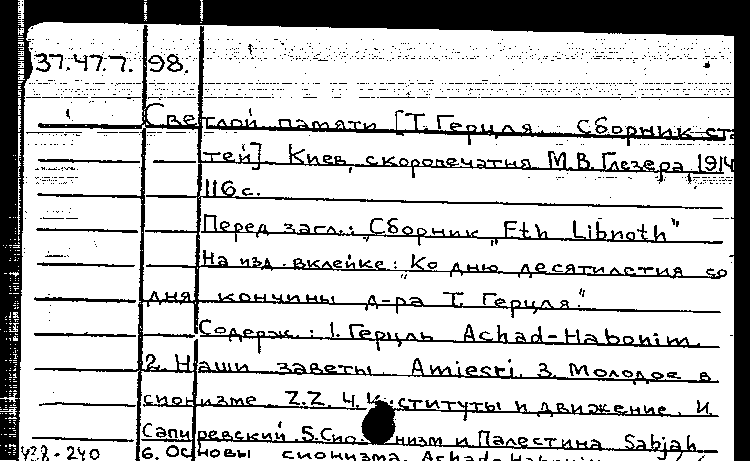 37.47.7. 98.
Светлой памяти [Т. Герцля. Сборник ста
тей]. Киев, скоропечатня М.В. Глезера, 1914
116 с.
Перед загл.: „Сборник „Eth Libnoth"
На изд. вклейке: „Ко дню десятилетия со
дня кончины д-ра Т. Герцля."
Содерж.: 1. Герцль Achad-Habonim.
2. Наши заветы Amiesri. 3. Молодое в
сионизме. Z.Z. 4. ституты и движение. И.
Сапиревский. 5. Сио низм и Палестина Sabjah.
6. Основы сионизма. Achad-Habonim
428-240